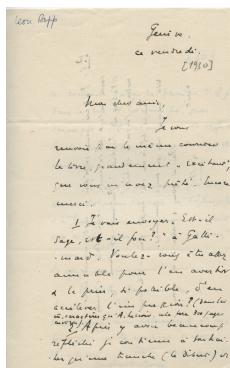 Leon Rapp
Genève
ce vendredi.
[1930]
Mon cher ami,
Je vous
renvoie par le même courrier
le livre, grandement excitant,
que vous m'avez prêté. Encore
merci.
1 J'envoyer "Est-il
sage, est-il fou?" à Galli-
mard. Voulez-vous être assez
aimable pour l'en avertir
& le prier, si possible, d'en
accélérer
2 Après y avoir beaucoup
réfléchi je continue à souhai-
ter qu'une tranche (le début) de